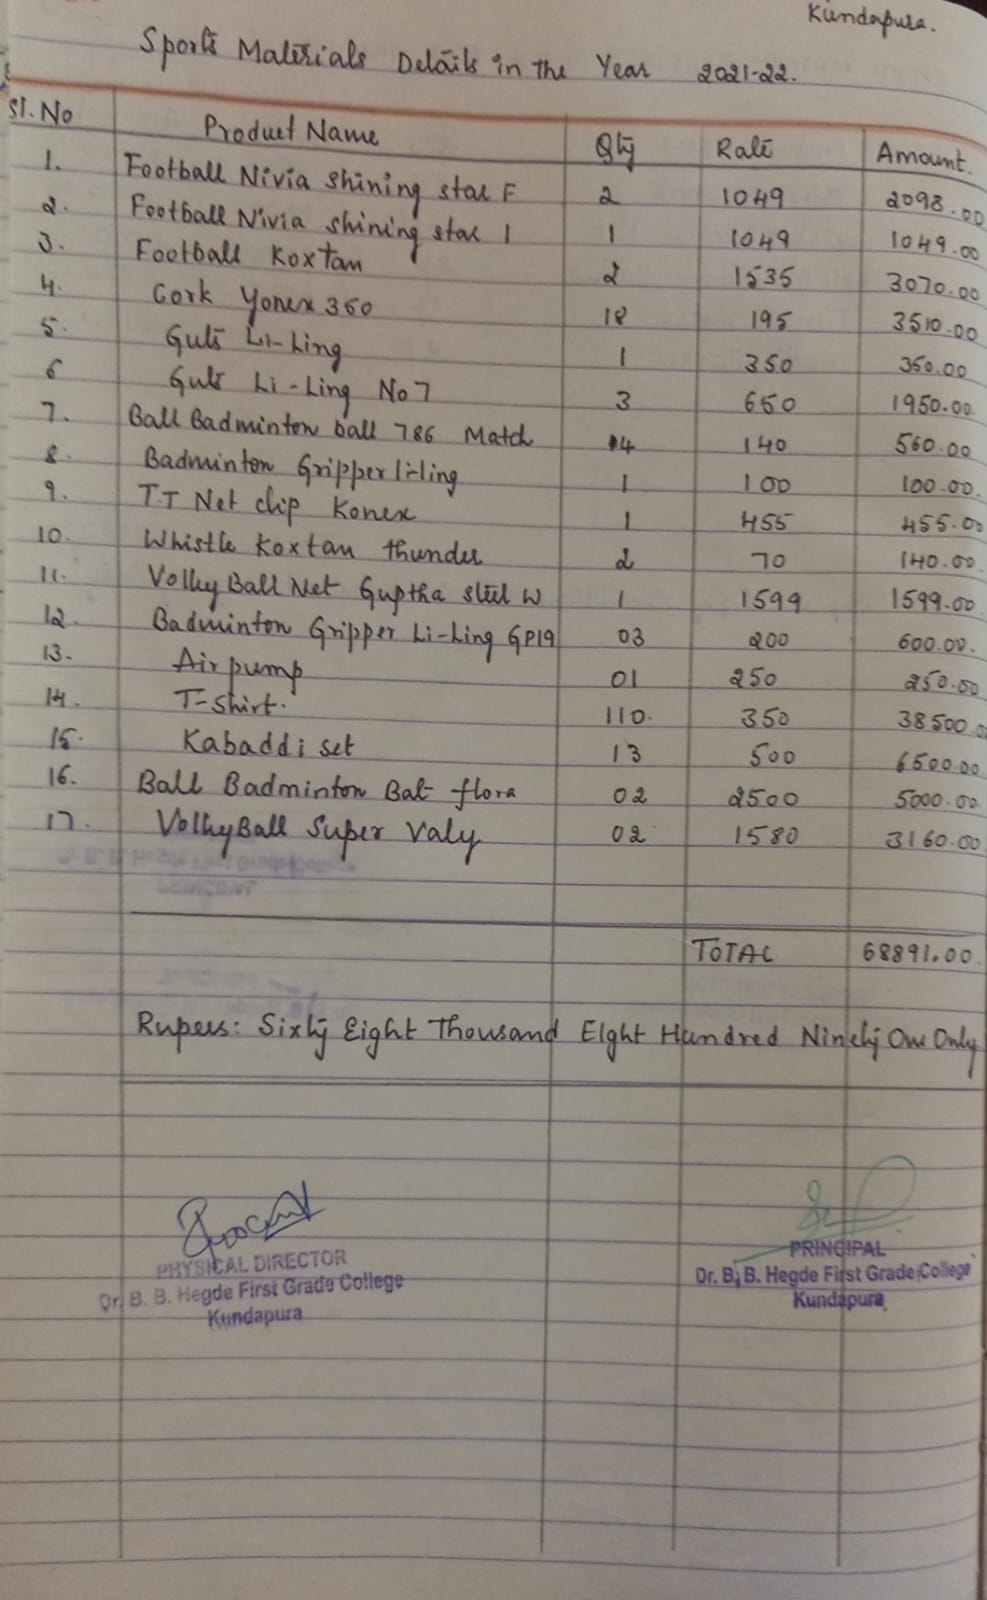 Kundapura.
Sports Materials Details in the Year 2021-22.
Sl. No Product Name Qty Rate Amount.
1. Football Nivia Shining star F 2 1049 2098.00
2. Football Nivia Shining star 1 1 1049 1049.00
3. Football Koxtan 2 1535 3070.00
4. Cork Yonex 350 18 195 3510.00
5. Guts Li-Ling 1 350 350.00
6 Guts Li-Ling No 7 3 650 1950.00
7. Ball Badminton ball 786 Match 4 140 560.00
8. Badminton Gripper li-ling 1 100 100.00.
9. T.T Net clip Konex 1 455 455.00
10. Whistle Koxtan thunder 2 70 140.00
11. Volley Ball Net Guptha steel W 1 1599 1599.00
12. Badminton Gripper Li-Ling GP19 03 200 600.00.
13. Air pump 01 250 250.00
14. T-Shirt. 110. 350 38500.0
15. Kabaddi set 13 500 6500.00
16. Ball Badminton Bat flora 02 2500 5000.00
17. VolleyBall Super Valy 02 1580 3160.00
TOTAL 68891.00.
Rupees: Sixty Eight Thousand Eight Hundred Ninety One Only
PHYSICAL DIRECTOR
Dr. B. B. Hegde First Grade College
Kundapura
PRINCIPAL
Dr. B. B. Hegde First Grade College
Kundapura